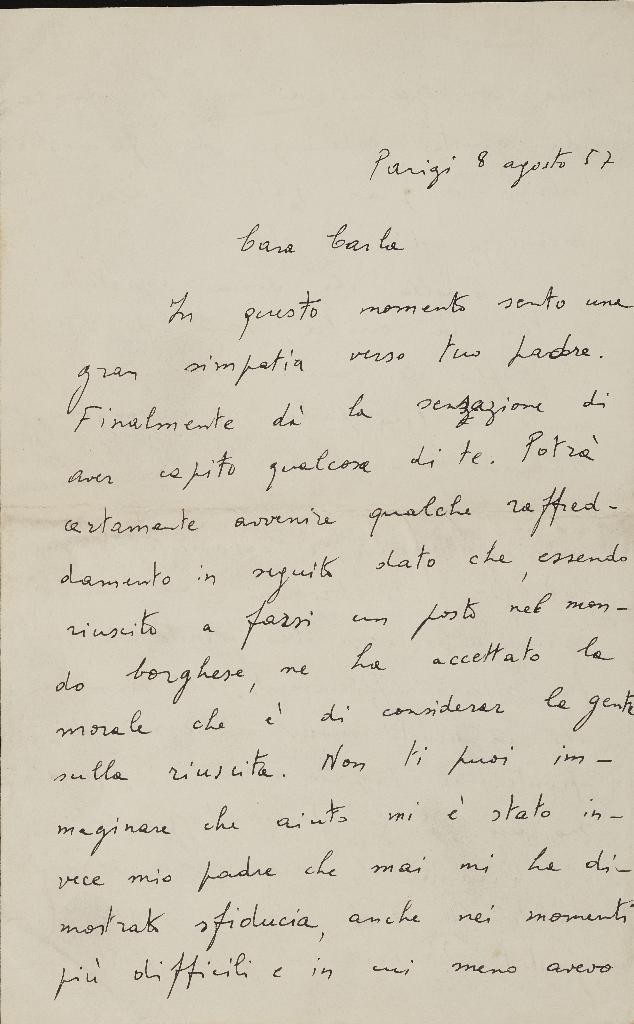 Parigi 8 agosto 57
Cara Carla
In questo momento sento una
gran simpatia verso tuo padre.
Finalmente dà la sensazione di
aver capito qualcosa di te. Potrà
certamente avvenire qualche raffred-
damento in seguito dato che, essendo
riuscito a farsi un posto nel mon-
do borghese, ne ha accettato la
morale che è di considerar la gente
sulla riuscita. Non ti puoi im-
maginare che aiuto mi è stato in-
vece mio padre che mai mi ha di-
mostrato sfiducia, anche nei momenti
più difficili e in cui meno avevo